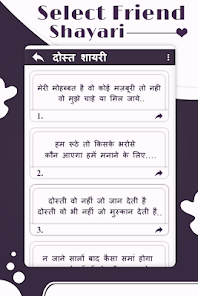 Select Friend
Shayari
दोस्त शायरी
मेरी मोहब्बत है वो कोई मजबूरी तो नही
वो मुझे चाहे या मिल जाये..
1.
हम रूठे तो किसके भरोसे
कौन आएगा हमें मनाने के लिए....
2.
दोस्ती वो नहीं जो जान देती हैं
दोस्ती वो भी नहीं जो मुस्कान देती है..
3.
न जाने सालों बाद कैसा समां होगा